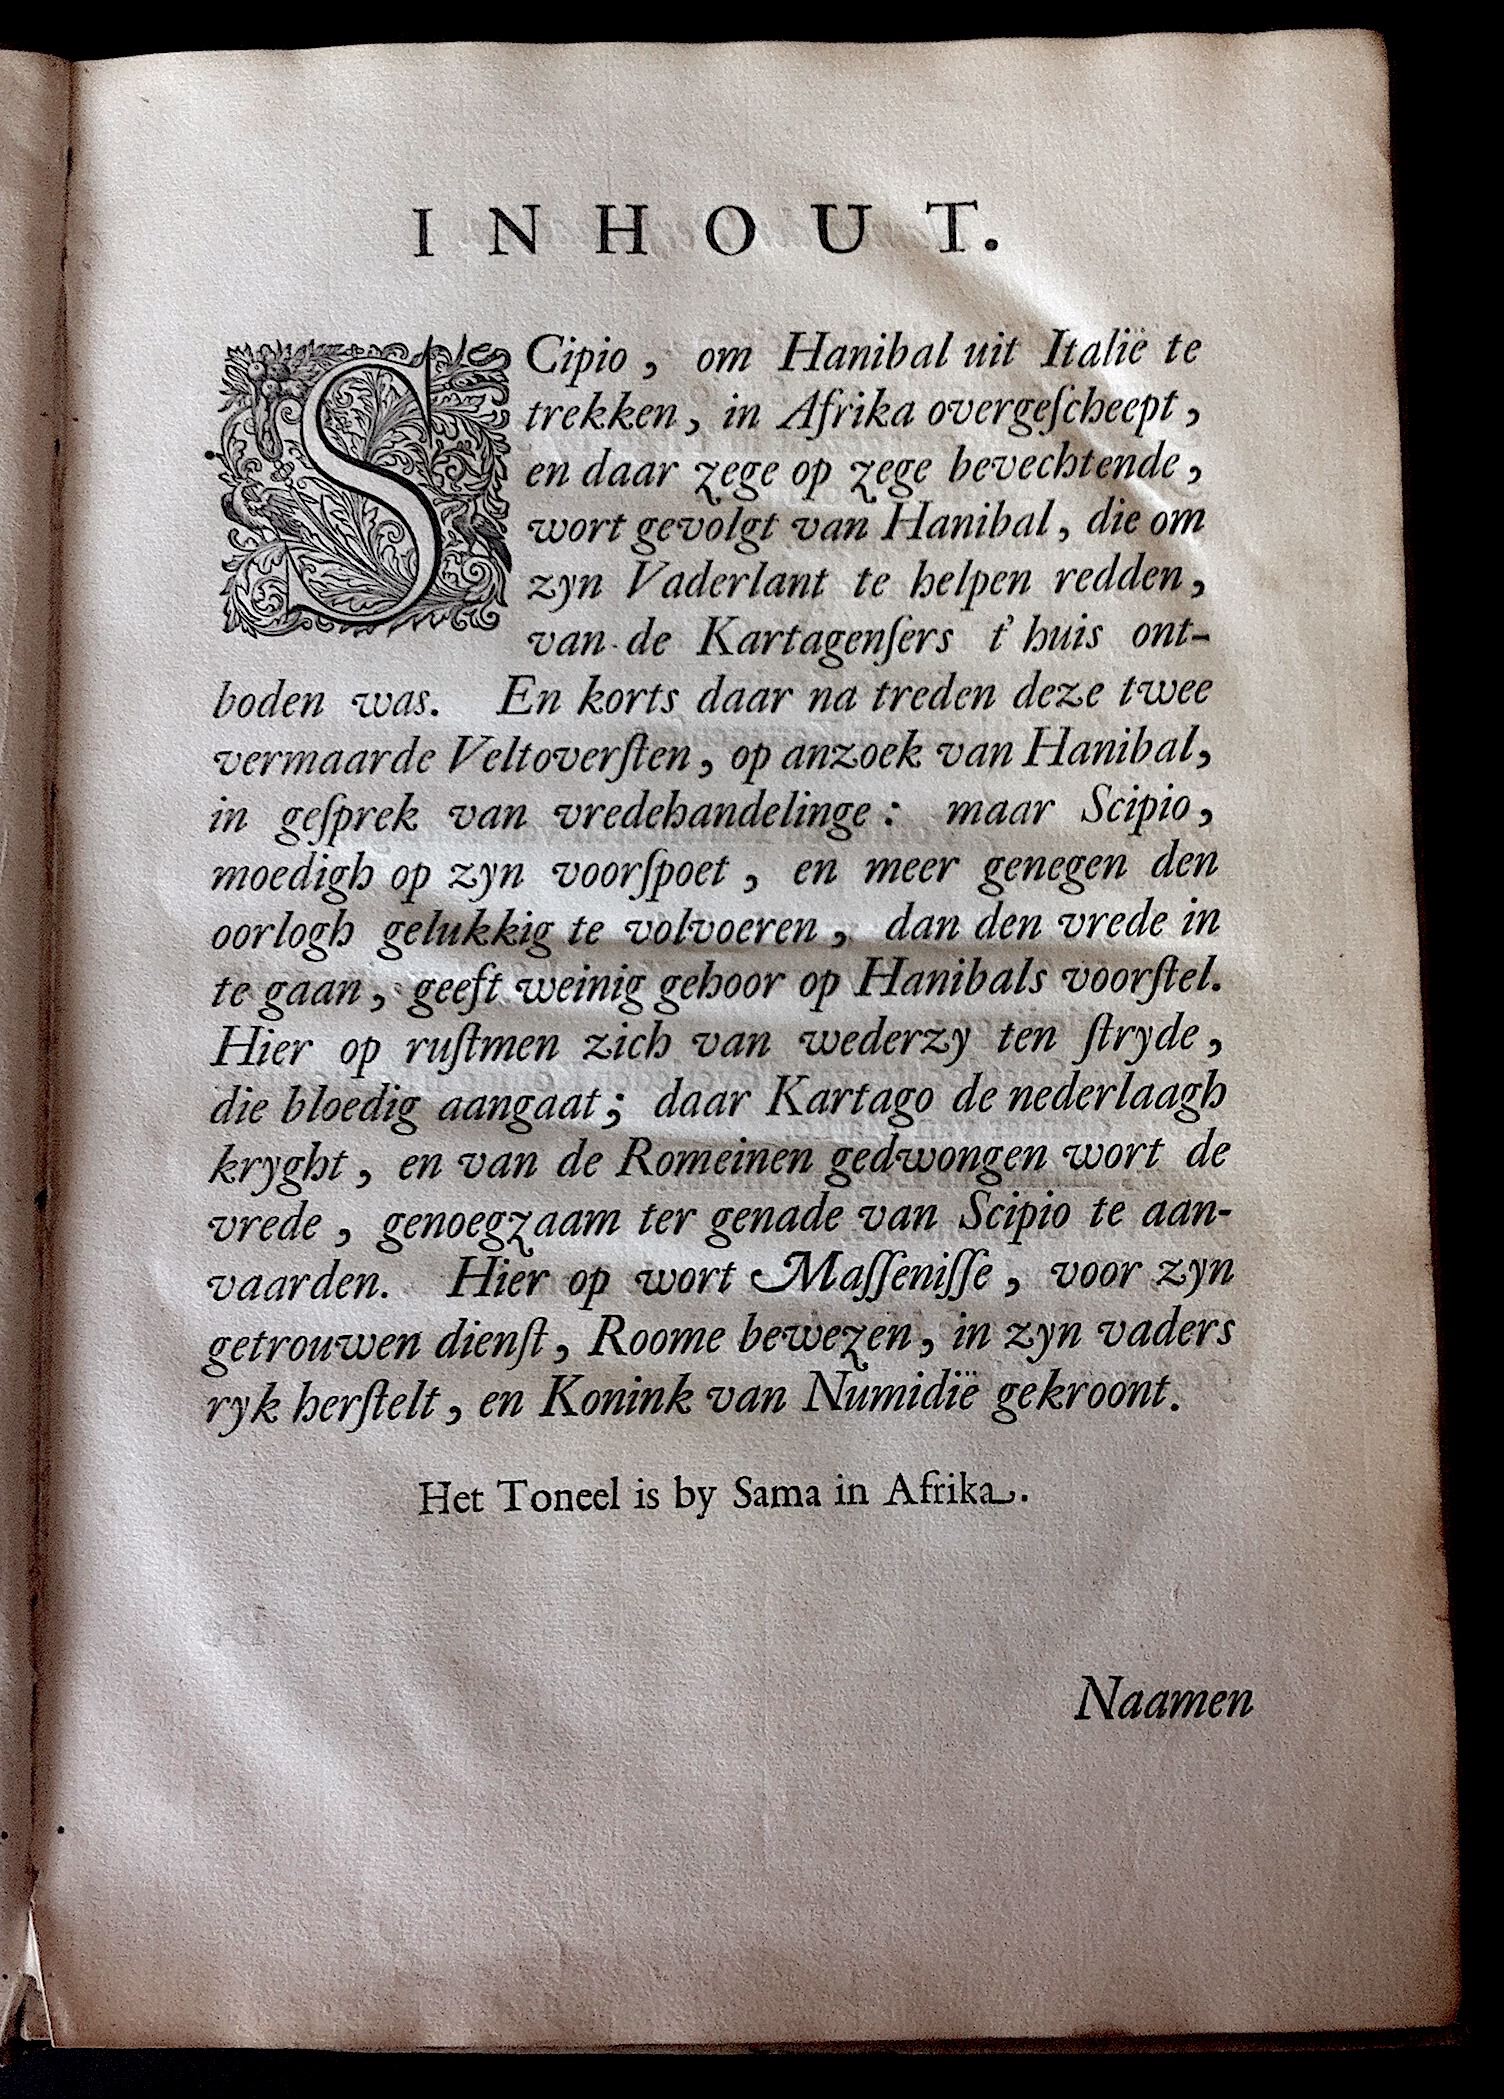 INHOUT.
SCipio, om Hanibal uit Italië te
trekken, in Afrika overgeſcheept,
en daar zege op zege bevechtende,
wort gevolgt van Hanibal, die om
zyn Vaderlant te helpen redden,
van de Kartagenſers t' huis ont-
boden was. En korts daar na treden deze twee
vermaarde Veltoverſten, op anzoek van Hanibal,
in geſprek van vredehandelinge: maar Scipio,
moedigh op zyn voorſpoet, en meer genegen den
oorlogh gelukkig te volvoeren, dan den vrede in
te gaan, geeft weinig gehoor op Hanibals voorſtel.
Hier op ruſtmen zich van wederzy ten ſtryde,
die bloedig aangaat; daar Kartago de nederlaagh
kryght, en van de Romeinen gedwongen wort de
vrede, genoegzaam ter genade van Scipio te aan-
vaarden. Hier op wort Maſſeniſſe, voor zyn
getrouwen dienſt, Roome bewezen, in zyn vaders
ryk herſtelt, en Konink van Numidië gekroont.
Het Toneel is by Sama in Afrika.
Naamen